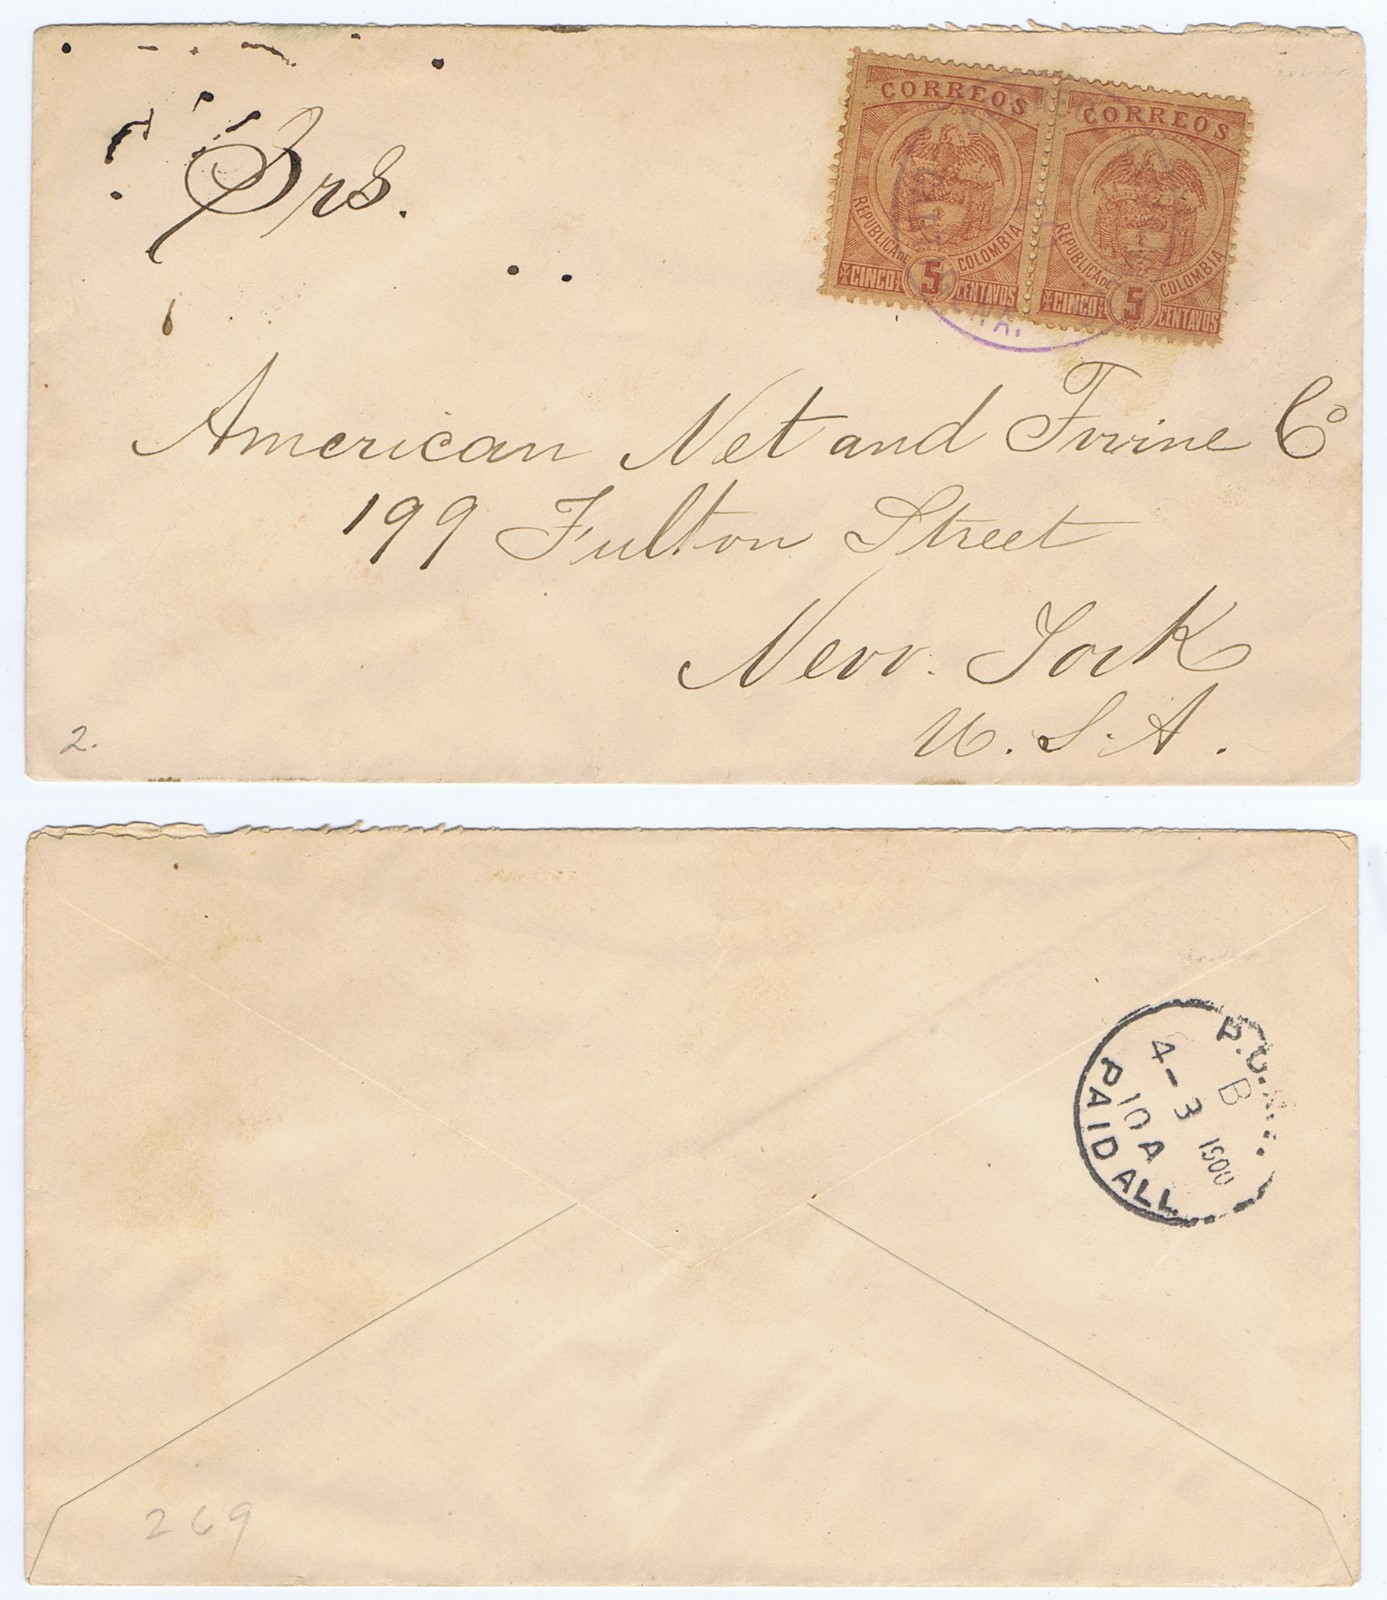 Srs.
CORREOS
REPUBLICA DE COLOMBIA
CINCO 5 CENTAVOS
CORREOS
REPUBLICA DE COLOMBIA
CINCO 5 CENTAVOS
NA.
American Net and Twine Co
199 Fulton Street
New. York
U. S. A.
2.
B
4-3 1900
10 A
PAID ALL
269